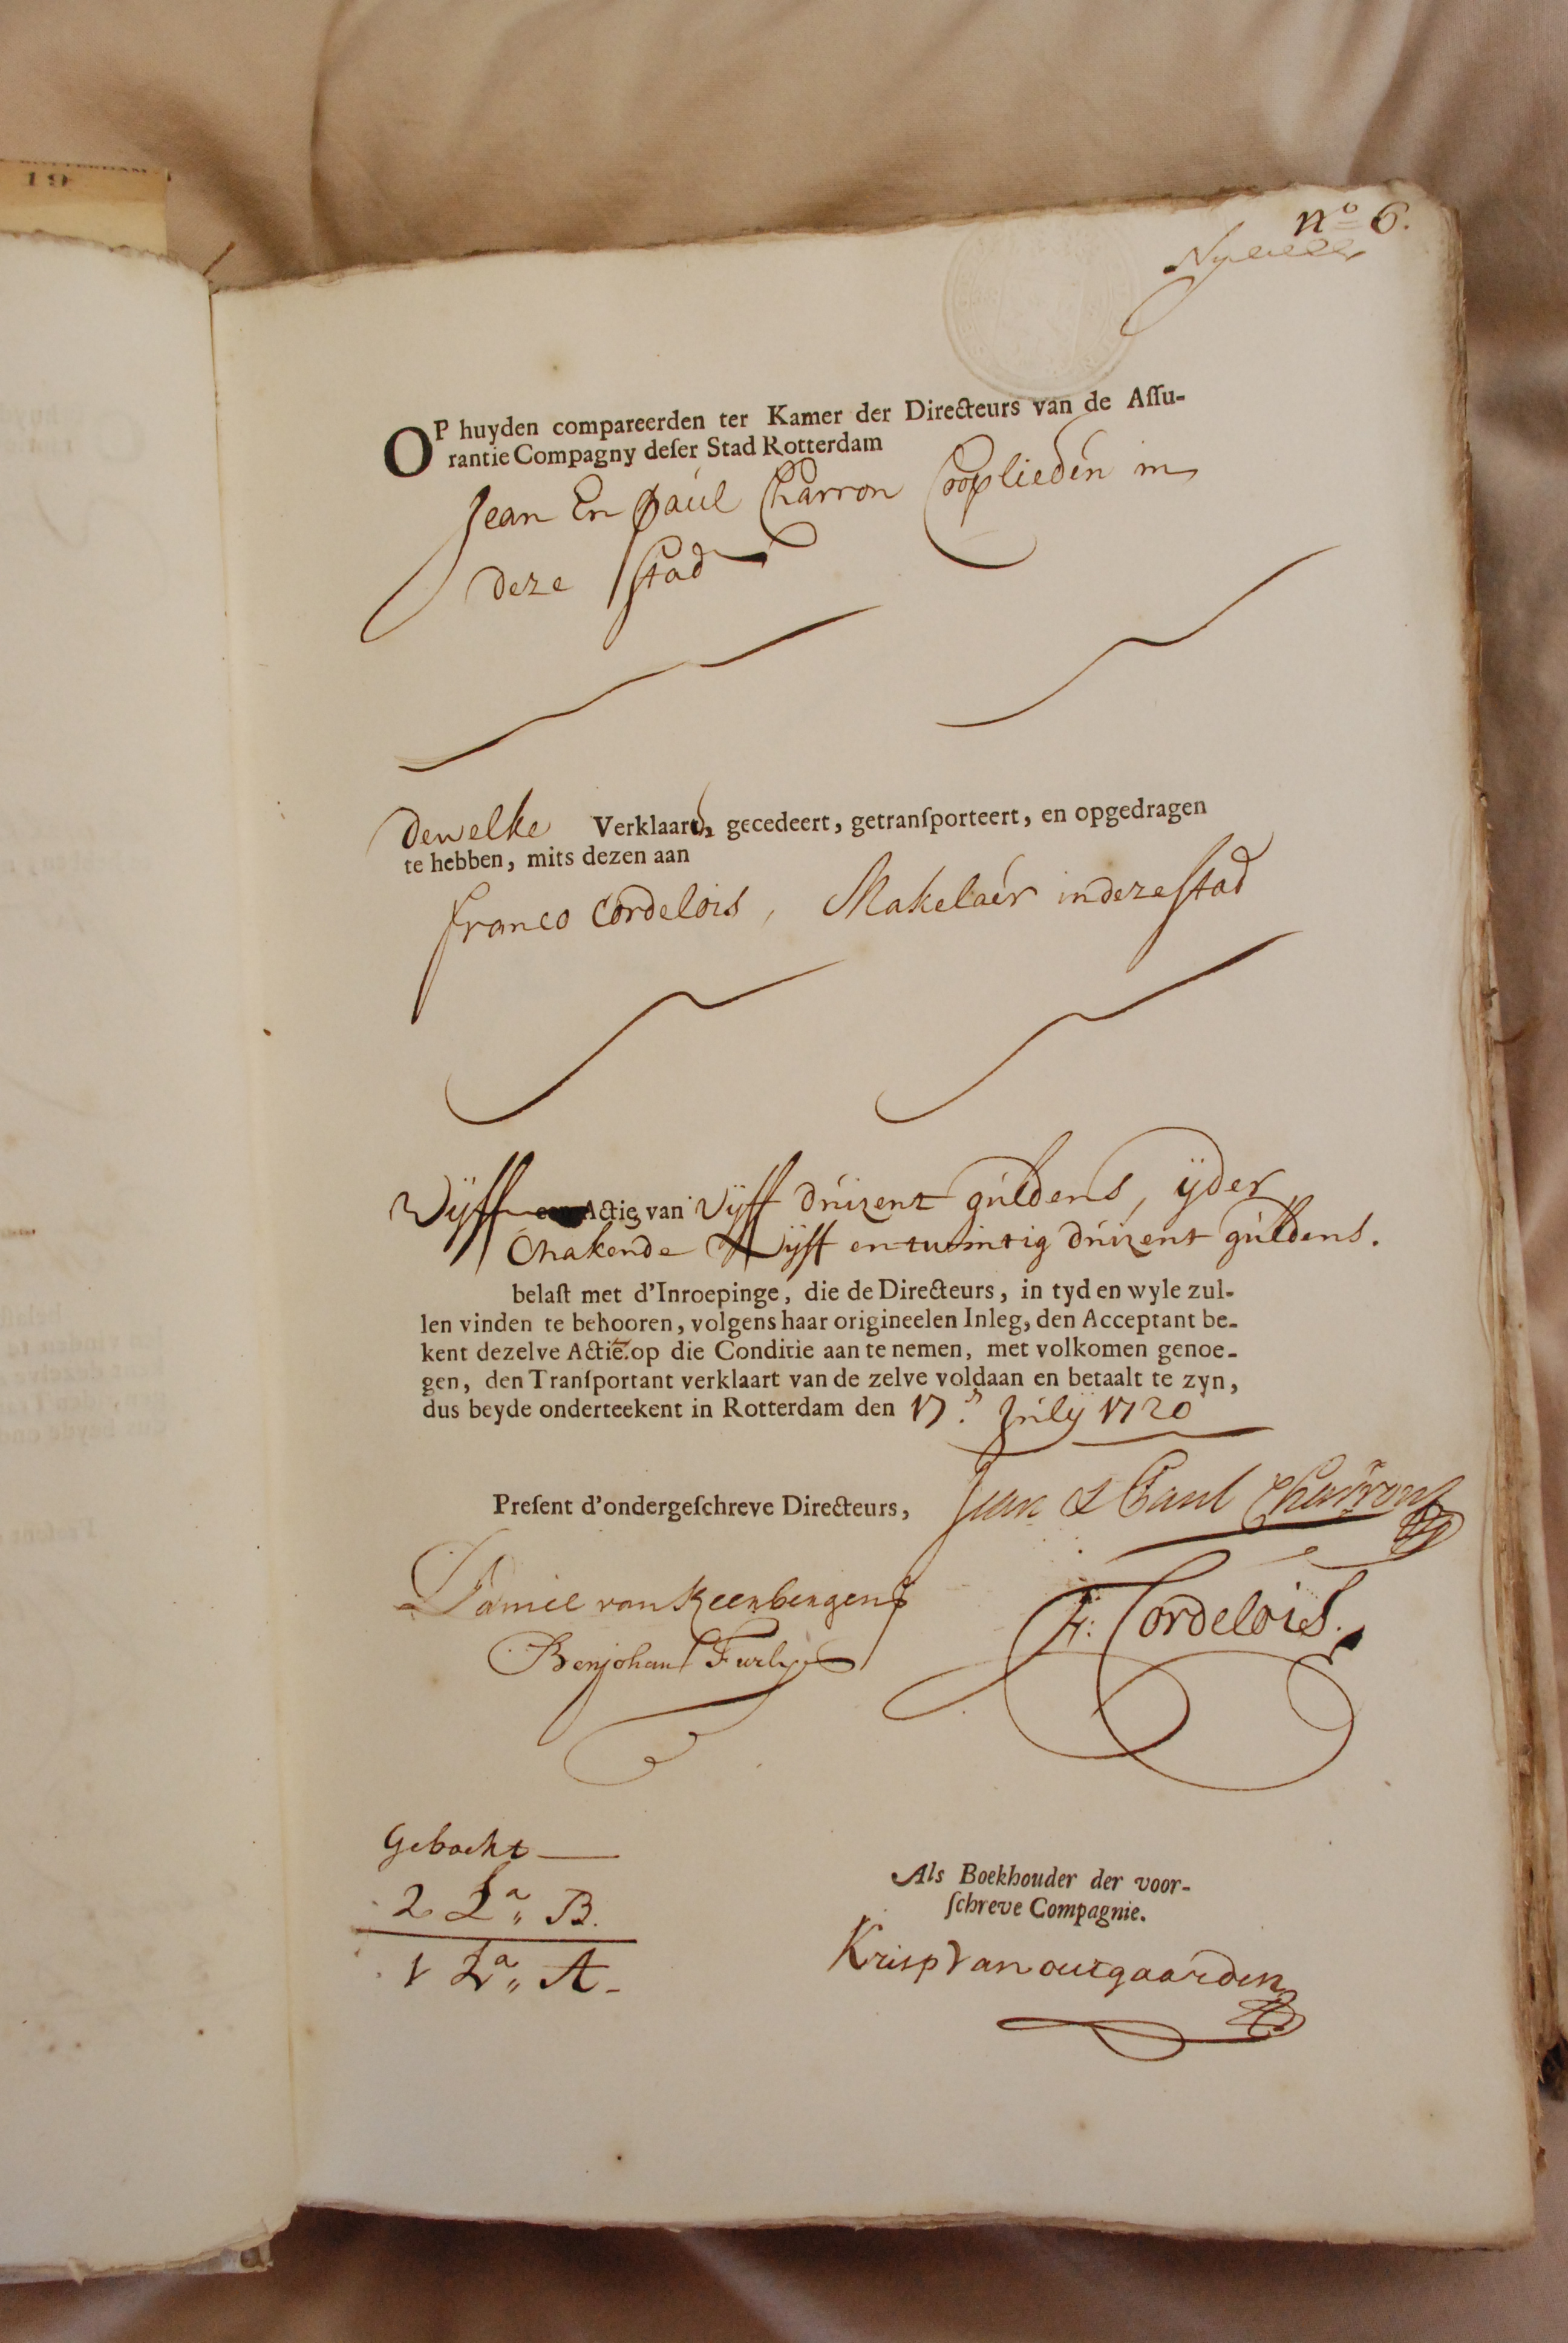 19
nº 6.
OP huyden compareerden ter Kamer der Directeurs van de Aſſu-
rantie Compagny deſer Stad Rotterdam
Jean En paul Charron Cooplieden in
deze Stad
dewelke Verklaard, gecedeert, getranſporteert, en opgedragen
te hebben, mits dezen aan
franco Cordelois, Makelaer in deze Stad
Vijff een Actie van Vijff duizent guldens, ijder
Makende Vijff en twintig duizent guldens.
belaſt met d'Inroepinge, die de Directeurs, in tyd en wyle zul-
len vinden te behooren, volgens haar origineelen Inleg, den Acceptant be-
kent dezelve Actie op die Conditie aan te nemen, met volkomen genoe-
gen, den Tranſportant verklaart van de zelve voldaan en betaalt te zyn,
dus beyde onderteekent in Rotterdam den 17. July 1720
Preſent d'ondergeſchreve Directeurs, Jean & Paul Charron
Daniel van Keenbergen
F: Cordelois.
Benjohan Furly
Gebocht
2 Lª B.
1 Lª A
Als Boekhouder der voor-
ſchreve Compagnie.
Krisp Van outgaarden